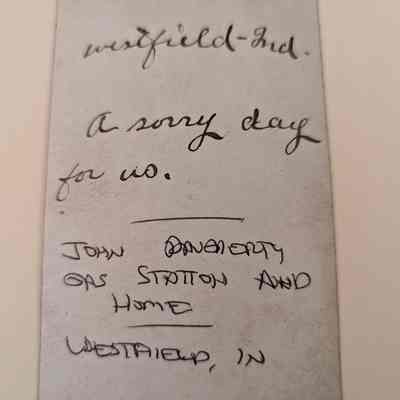 westfield-Ind.
A sorry day
for us.
JOHN DAUGHERTY
GAS STATION AND
HOME
WESTFIELD, IN